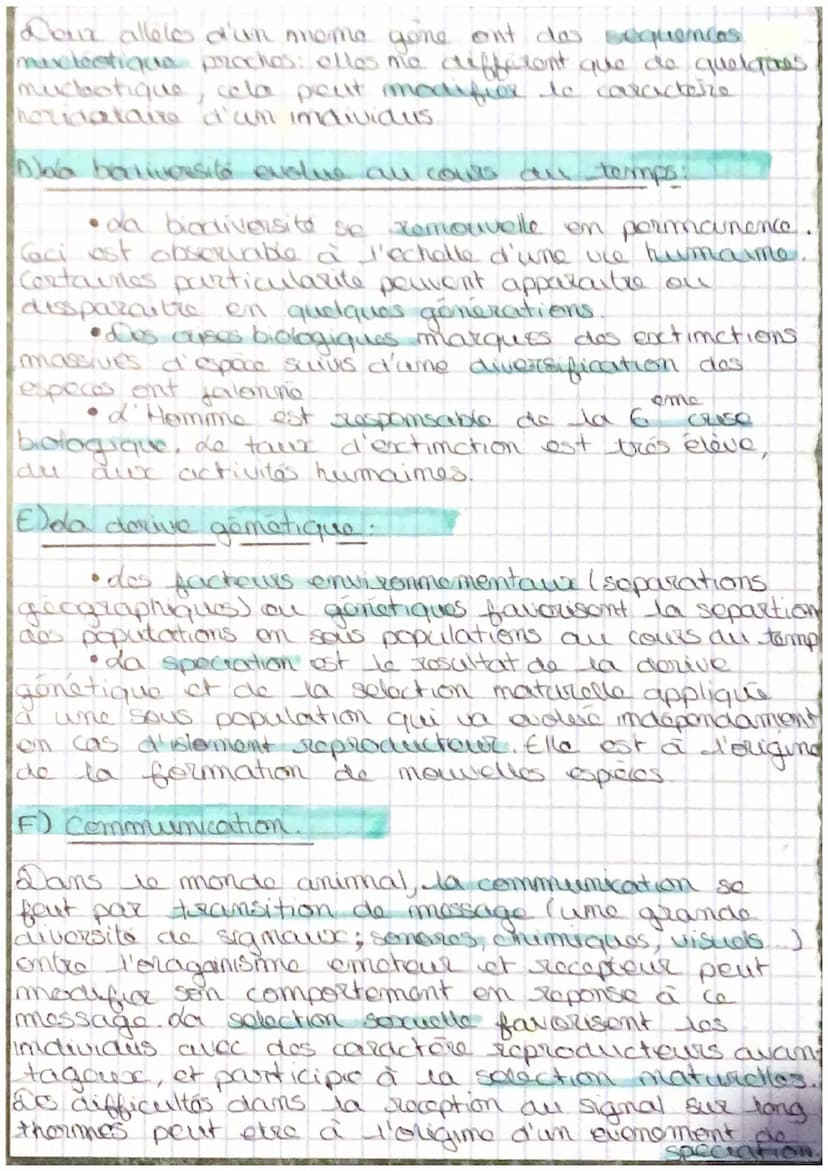 Deux allèles d'un même gène ont des séquences
nucléotique proches: elles ne diffèrent que de quelques
nucleotique, cela peut modifier le caractère
d'un individus
D) La evolue au cours du temps:
• La biodiversité se renouvelle en permanence.
Ceci est observable à l'echelle d'une vie humaine.
Certaines particularité peuvent apparaitre ou
dissparaitre en quelques générations.
• Des crises biologiques marques des extinctions
massives d'espèce suivis d'une diversification des
espèces ont
• L'Homme est responsable de la 6 eme crise
biologique. Le taux d'extinction est très élève,
du aux activités humaines.
E) La derive génétique:
• des facteurs environnementaux (séparations
géographiques) ou génétiques favorisent la
des populations en sous populations au cours du temp
• La speciation est le résultat de la derive
génétique et de la selection naturelle applique
à une sous population qui va indépendament
en cas reproducteur. Elle est à l'origine
de la formation de nouvelles espèces
F) Communication.
Dans le monde animal, la communication se
fait par transition de message (une grande
diversité de signaux; sonores, chimiques, visuels...)
entre emetteur et recepteur peut
modifier son comportement en réponse à ce
message. La selection sexuelle favorisent les
individus avec des caractère reproducteurs avan
tageux, et participe à la selection naturelles.
Des difficultés dans la reception du signal sur long
peut etre à l'origine d'un evenement de
speciation